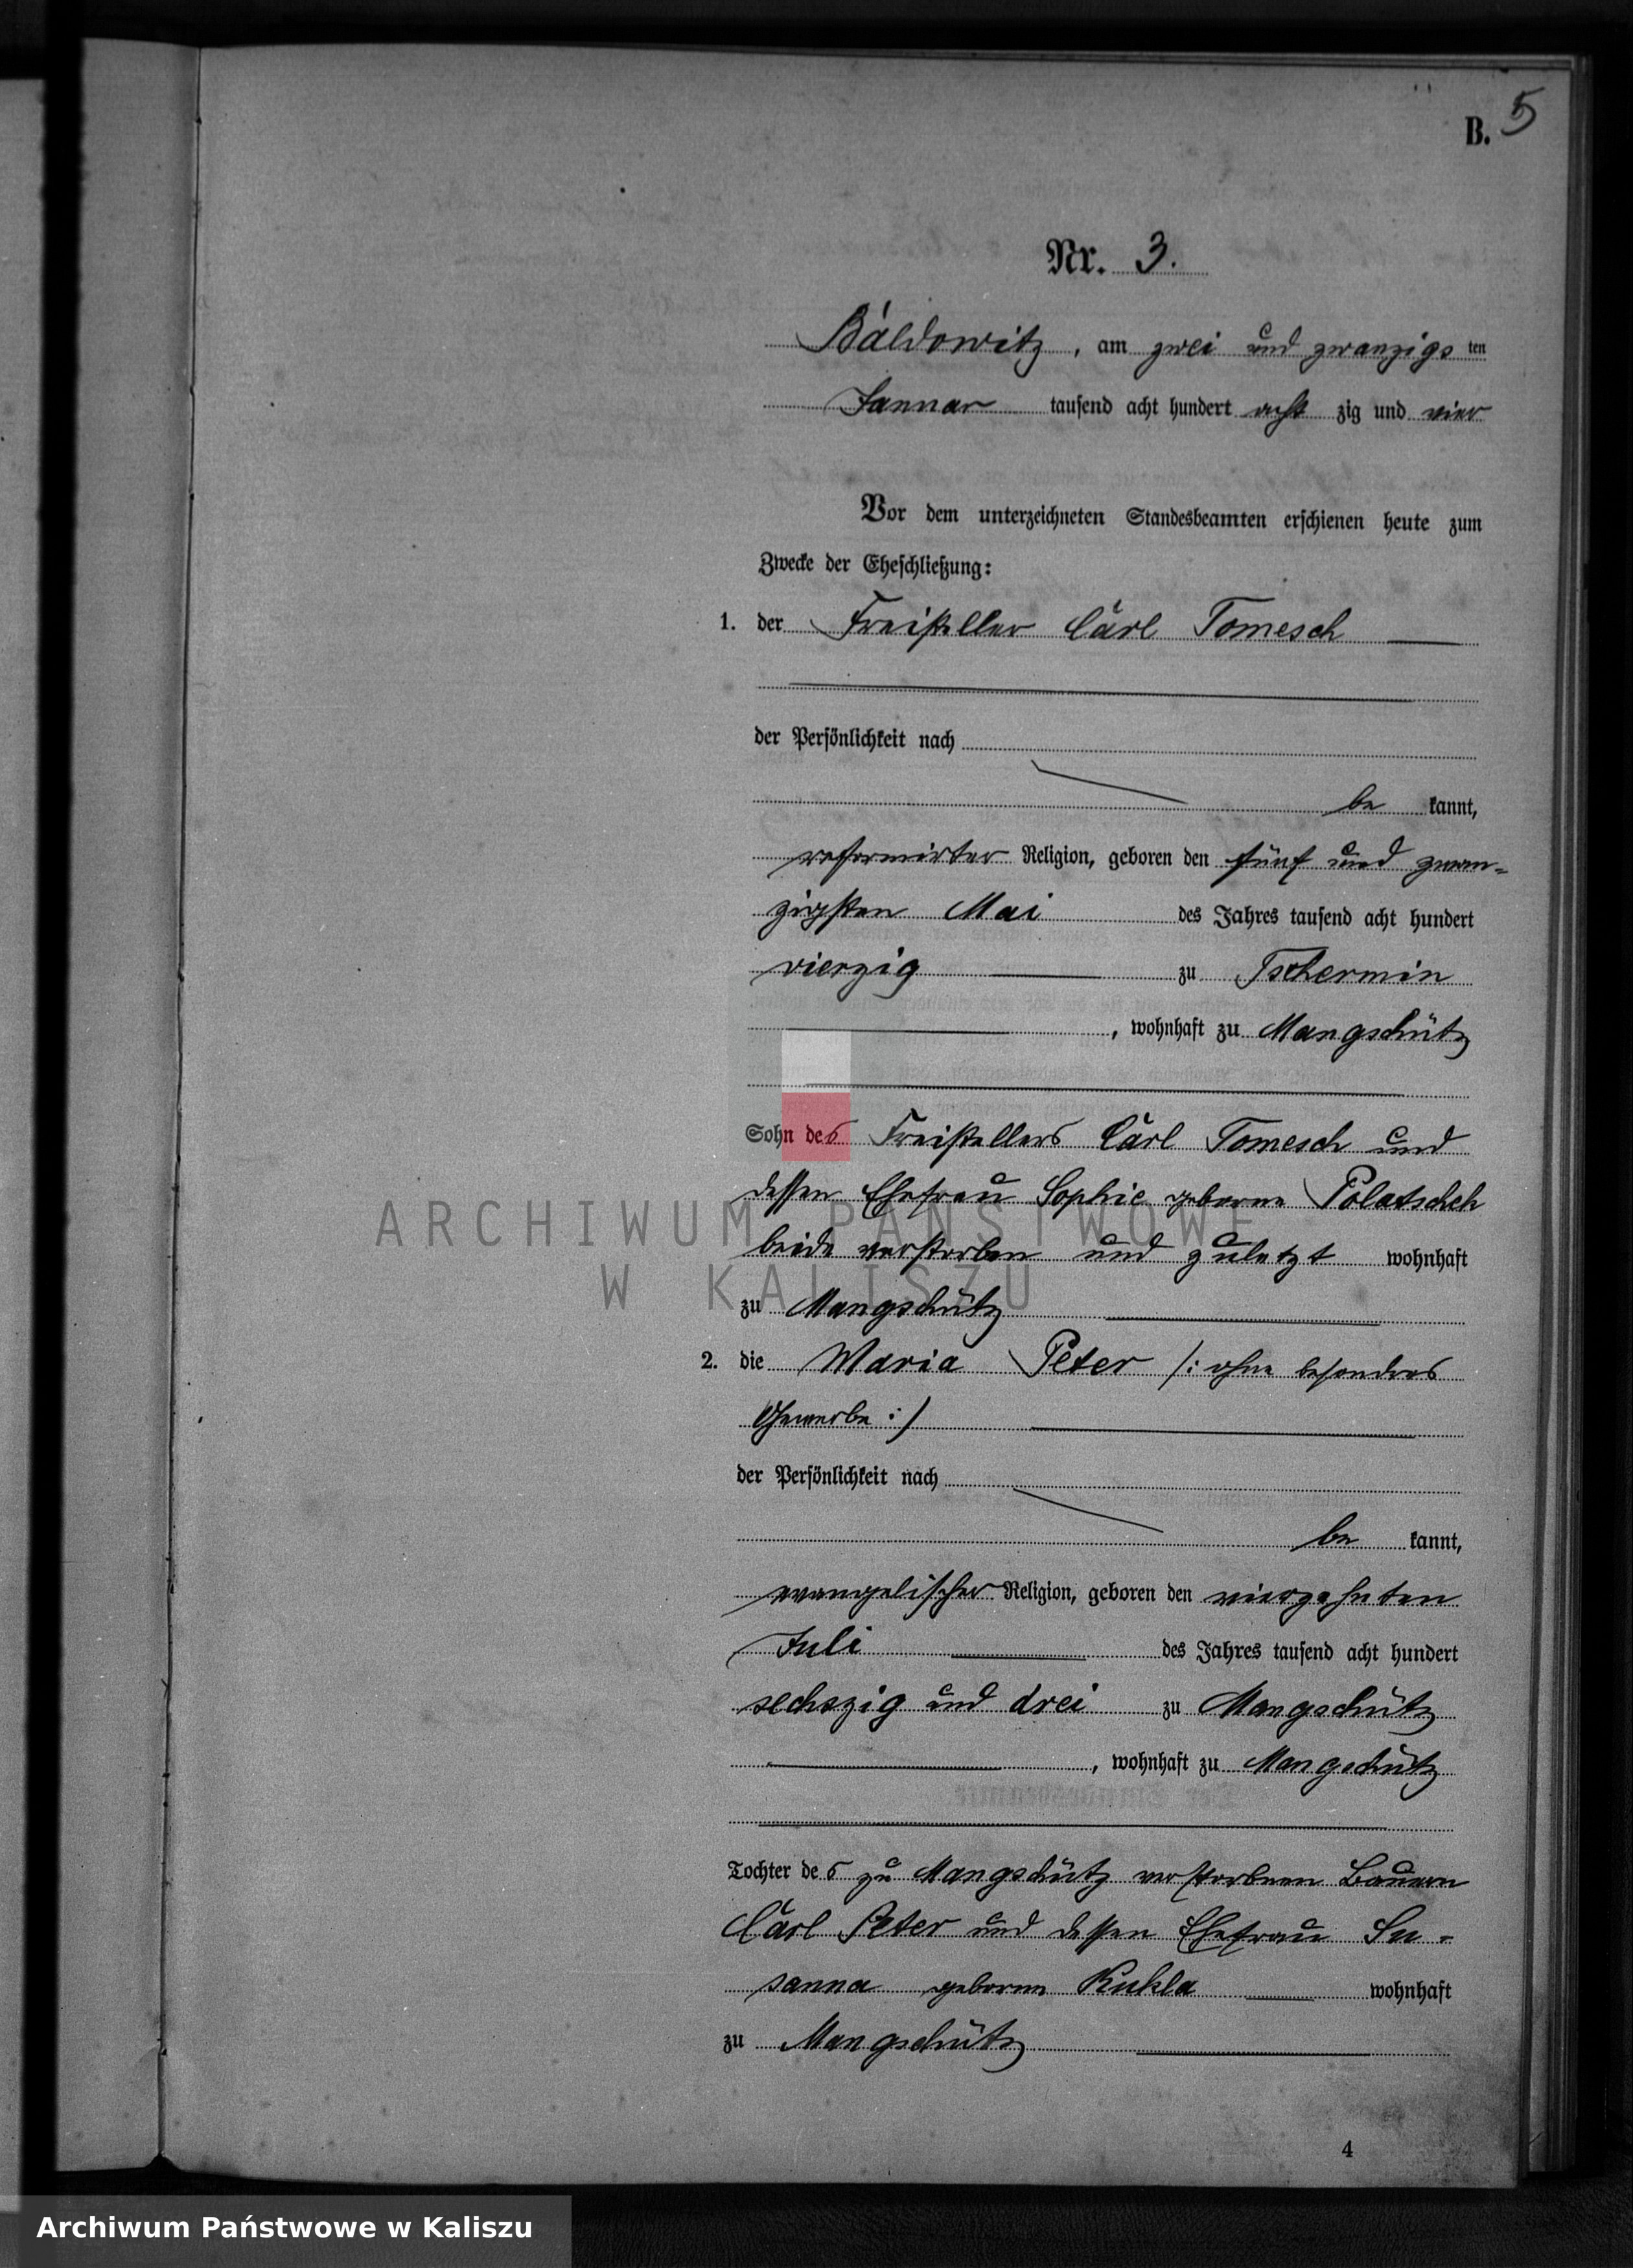 B. 5
Nr. 3.
Báldowitz, am zwei und zwanzigs ten
Januar tausend acht hundert acht zig und vier
Vor dem unterzeichneten Standesbeamten erschienen heute zum
Zwecke der Eheschließung:
1. der Freisteller Carl Tomesch
der Persönlichkeit nach
be kannt,
reformirter Religion, geboren den fünf und zwan-
zigsten Mai des Jahres tausend acht hundert
vierzig zu Tschermin
, wohnhaft zu Mangschütz
Sohn des Freistellers Carl Tomesch und
dessen Ehefrau Sophie geborne Polatschek
beide verstorben und zuletzt wohnhaft
zu Mangschütz
2. die Maria Peter /: ohne besondres
Gewerbe :/
der Persönlichkeit nach
be kannt,
evangelischer Religion, geboren den vierzehnten
Juli des Jahres tausend acht hundert
sechszig und drei zu Mangschütz
, wohnhaft zu Mangschütz
Tochter des zu Mangschütz verstorbenen Bauern
Carl Peter und dessen Ehefrau Su-
sanna geborne Kukla wohnhaft
zu Mangschütz
4
ARCHIWUM PAŃSTWOWE
W KALISZU
Archiwum Państwowe w Kaliszu